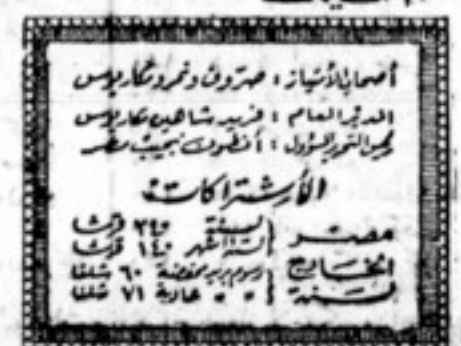 أصحاب الامتياز : صروف ونمر ومكاريوس
المدير العام : فريد شاهين مكاريوس
رئيس التحرير المسؤول : أنطون نجيب مطر
الاشتراكات
مصر { لسنة ٢٤٥ قرشا
لستة أشهر ١٤٥ قرشا
الخارج { رسوم بريد مخفضة ٦٠ شلنا
لسنة { " " عادية ٧١ شلنا